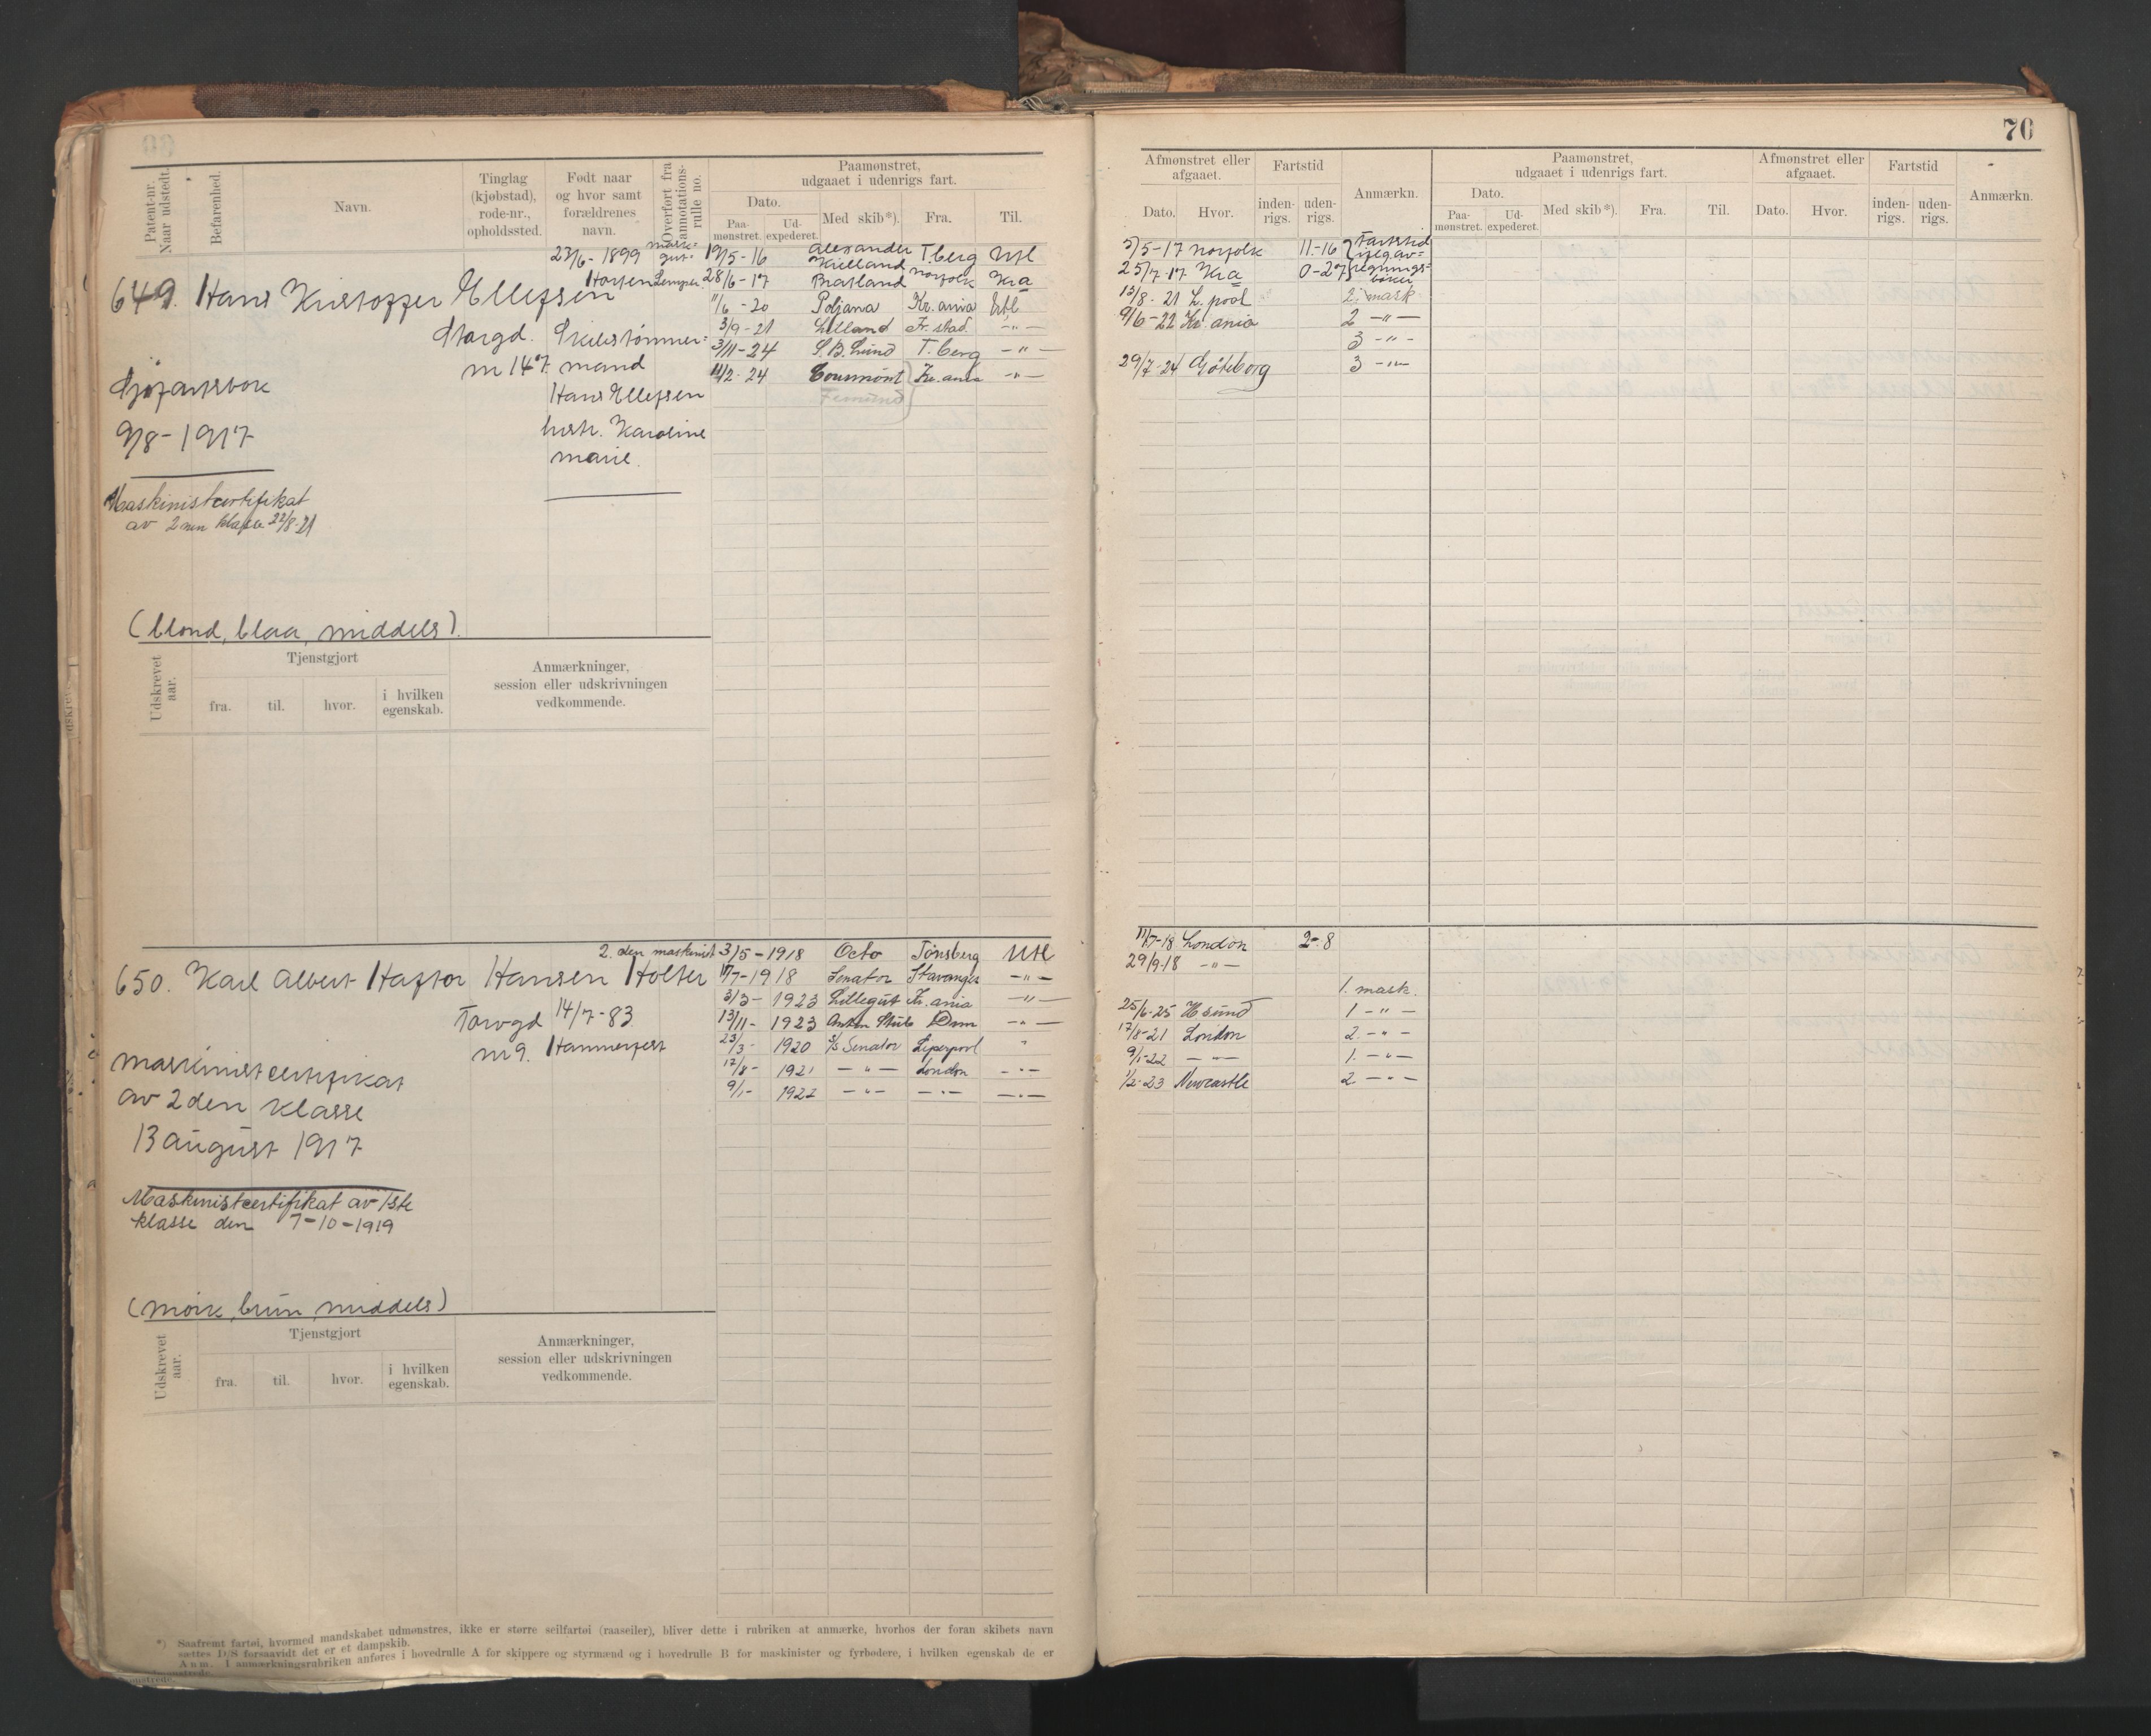 70
Patent-nr. Naar udstedt.
Befarenhed.
Navn.
Tinglag (kjøbstad), rode-nr., opholdssted.
Født naar og hvor samt forældrenes navn.
Overført fra annotations-rulle no.
Paamønstret, udgaaet i udenrigs fart.
Dato.
Paa-mønstret.
Ud-expederet.
Med skib*).
Fra.
Til.
Afmønstret eller afgaaet.
Dato.
Hvor.
Fartstid
inden-rigs.
uden-rigs.
Anmærkn.
Paamønstret, udgaaet i udenrigs fart.
Dato.
Paa-mønstret.
Ud-expederet.
Med skib*).
Fra.
Til.
Afmønstret eller afgaaet.
Dato.
Hvor.
Fartstid
inden-rigs.
uden-rigs.
Anmærkn.
649. Hans Kristoffer Ellefsen
23/6-1899
Horten
Storgd. Skibstømmer=
nr 147. mand
Hans Ellefsen
hustr. Karoline
Marie.
Sjøfartsbok
9/8-1917
Maskinistcertifikat
av 2nen klasse 22/8-21
(blond, blaa, middels).
mask= gut. 19/5-16 Alexander Kielland T.berg Utl 5/5-17 Norfolk 11-16 Fartstid ifølg av=
Lemper. 28/6-17 Bratland Norfolk Kra 25/7-17 Kra 0-27 regnings= bøker
11/6-20 Poljana Kr.ania Utl 13/8-21 L.pool 2. mask.
3/9-21 Lilland Fr.stad -"- 9/6-22 Kr.ania 2 -"-
3/11-24 S.B. Lund T.berg -"- 3 -"-
11/2-24 Tourmont Kr.ania -"- 29/7-24 Göteborg 3 -"-
Femund
Udskrevet aar.
Tjenstgjort
fra.
til.
hvor.
i hvilken egenskab.
Anmærkninger, session eller udskrivningen vedkommende.
650. Karl Albert Haftor Hansen Holter
Torvgd 14/7-83
nr 9. Hammerfest
maskinistcertifikat
av 2den klasse
13 august 1917
Maskinistcertifikat av 1ste
klasse den 7-10-1919
(mørk, brun, middels)
2.den maskinist 3/5-1918 Octo Tønsberg Utl 11/7-18 London 2-8
17/7-1918 Senator Stavanger -"- 29/9-18 -"-
3/3-1923 Lillegut Kr.ania -"- 1. mask.
13/11-1923 Anton Stub Dmn -"- 25/6-25 Hsund 1 -"-
23/3-1920 s/s Senator Liverpool " 17/8-21 London 2. -"-
17/8-1921 -"- London -"- 9/1-22 -"- 1. -"-
9/1-1922 -"- -"- -"- 1/2-23 Newcastle 2 -"-
Udskrevet aar.
Tjenstgjort
fra.
til.
hvor.
i hvilken egenskab.
Anmærkninger, session eller udskrivningen vedkommende.
*) Saafremt fartøi, hvormed mandskabet udmønstres, ikke er større seilfartøi (raaseiler), bliver dette i rubriken at anmærke, hvorhos der foran skibets navn
sættes D/S forsaavidt det er et dampskib.
Anm. I anmærkningsrubriken anføres i hovedrulle A for skippere og styrmænd og i hovedrulle B for maskinister og fyrbødere, i hvilken egenskab de er